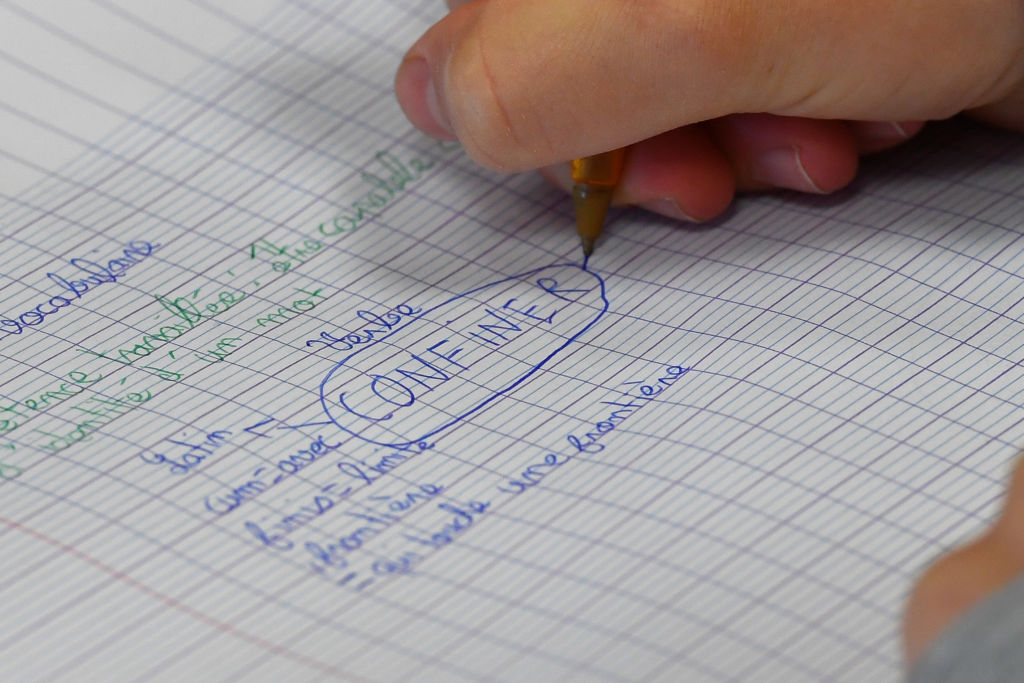 vocabulaire
travaillée : être capable
d'un mot
Verbe
CONFINER
Latin
cum = avec
finis = limite
frontière
= qui borde une frontière